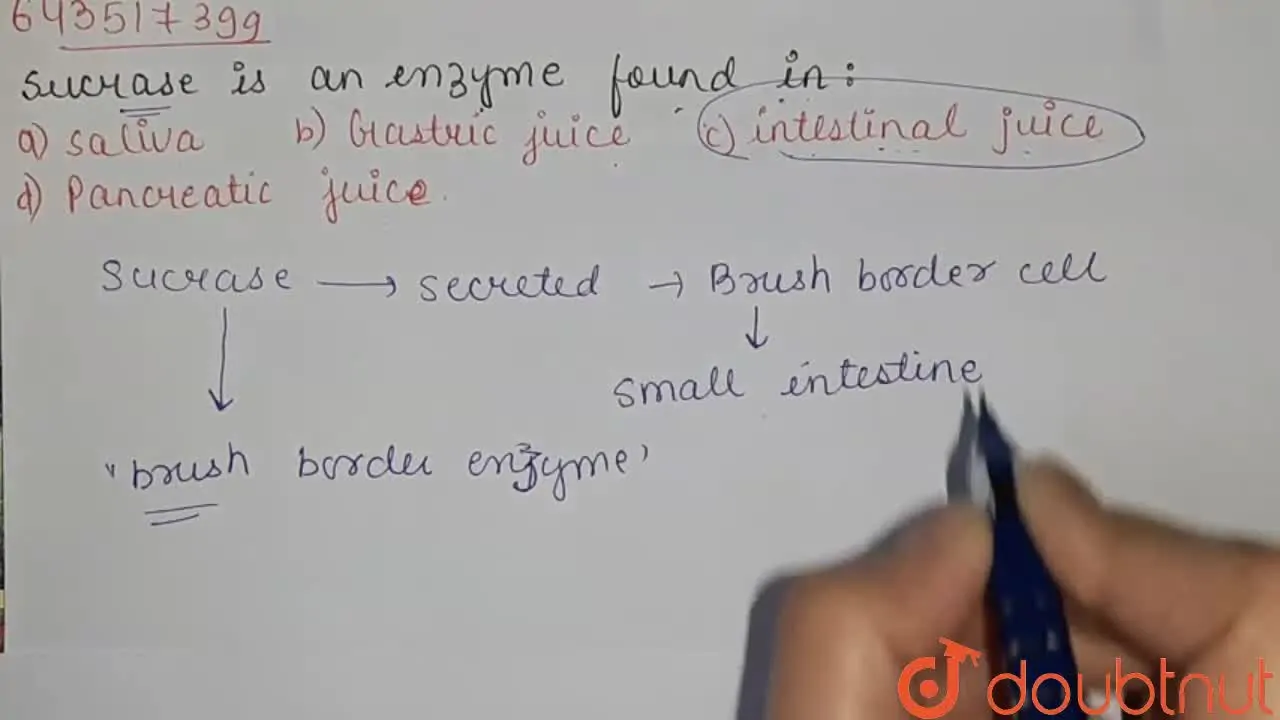 643517399
Sucrase is an enzyme found in:
a) Saliva b) Gastric juice (c) intestinal juice
d) Pancreatic juice.
Sucrase → secreted → Brush border cell
↓ ↓
small intestine
"brush border enzyme"
doubtnut